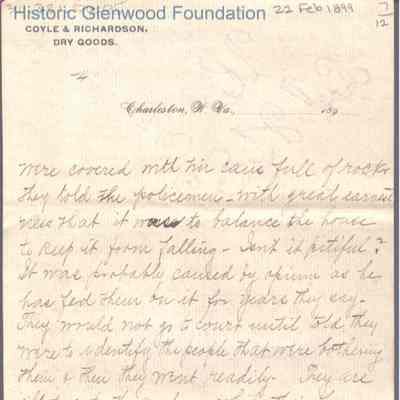 Historic Glenwood Foundation
22 Feb 1899
7/12
COYLE & RICHARDSON,
DRY GOODS.
4
Charleston, W. Va., 189
were covered with tin cans full of rocks
they told the policemen - with great earnest
ness that it was to balance the house
to keep it from falling - Isn't it pitiful?
It was probably caused by opium as he
has fed them on it for years they say -
They would not go to court until told they
were to identify the people that were bothering
them & then they went readily. They are